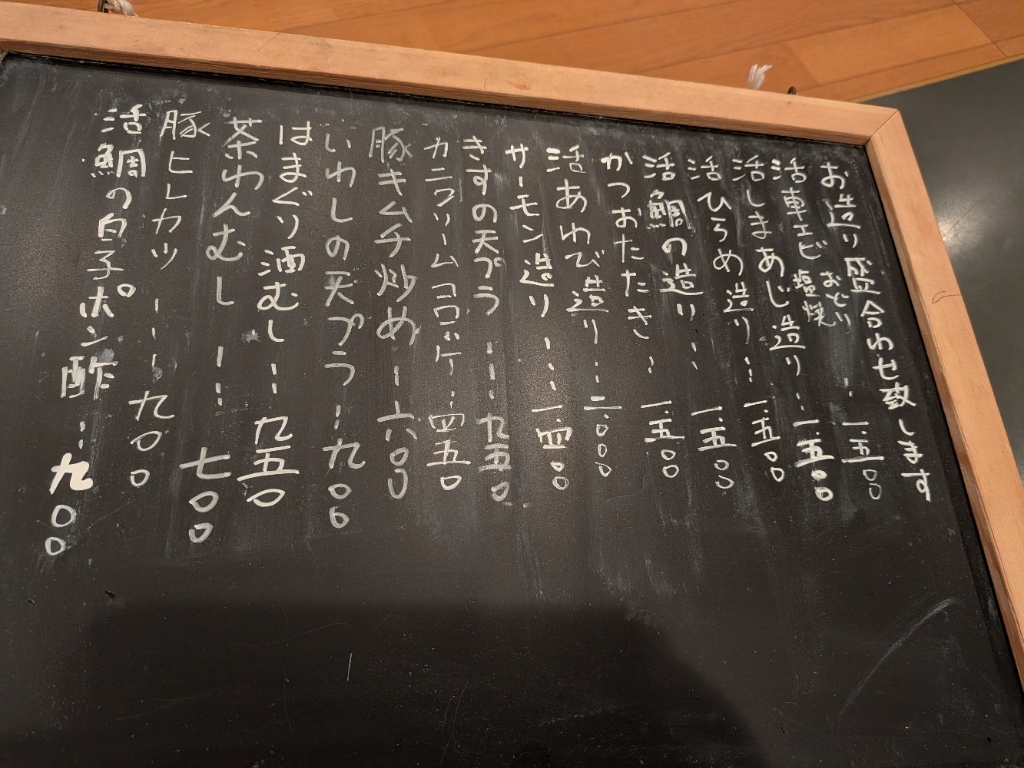 お造り盛合わせ致します
活車エビ おどり 塩焼 … 一.五〇〇
活しまあじ造り … 一.五〇〇
活ひらめ造り … 一.五〇〇
活鯛の造り … 一.五〇〇
かつおたたき … 一.五〇〇
活あわび造り … 二.〇〇〇
サーモン造り … 一.四〇〇
きすの天プラ … 九五〇
カニクリームコロッケ … 四五〇
豚キムチ炒め … 六〇〇
いわしの天プラ … 九〇〇
はまぐり酒むし … 九五〇
茶わんむし … 七〇〇
豚ヒレカツ … 九〇〇
活鯛の白子ポン酢 … 九〇〇